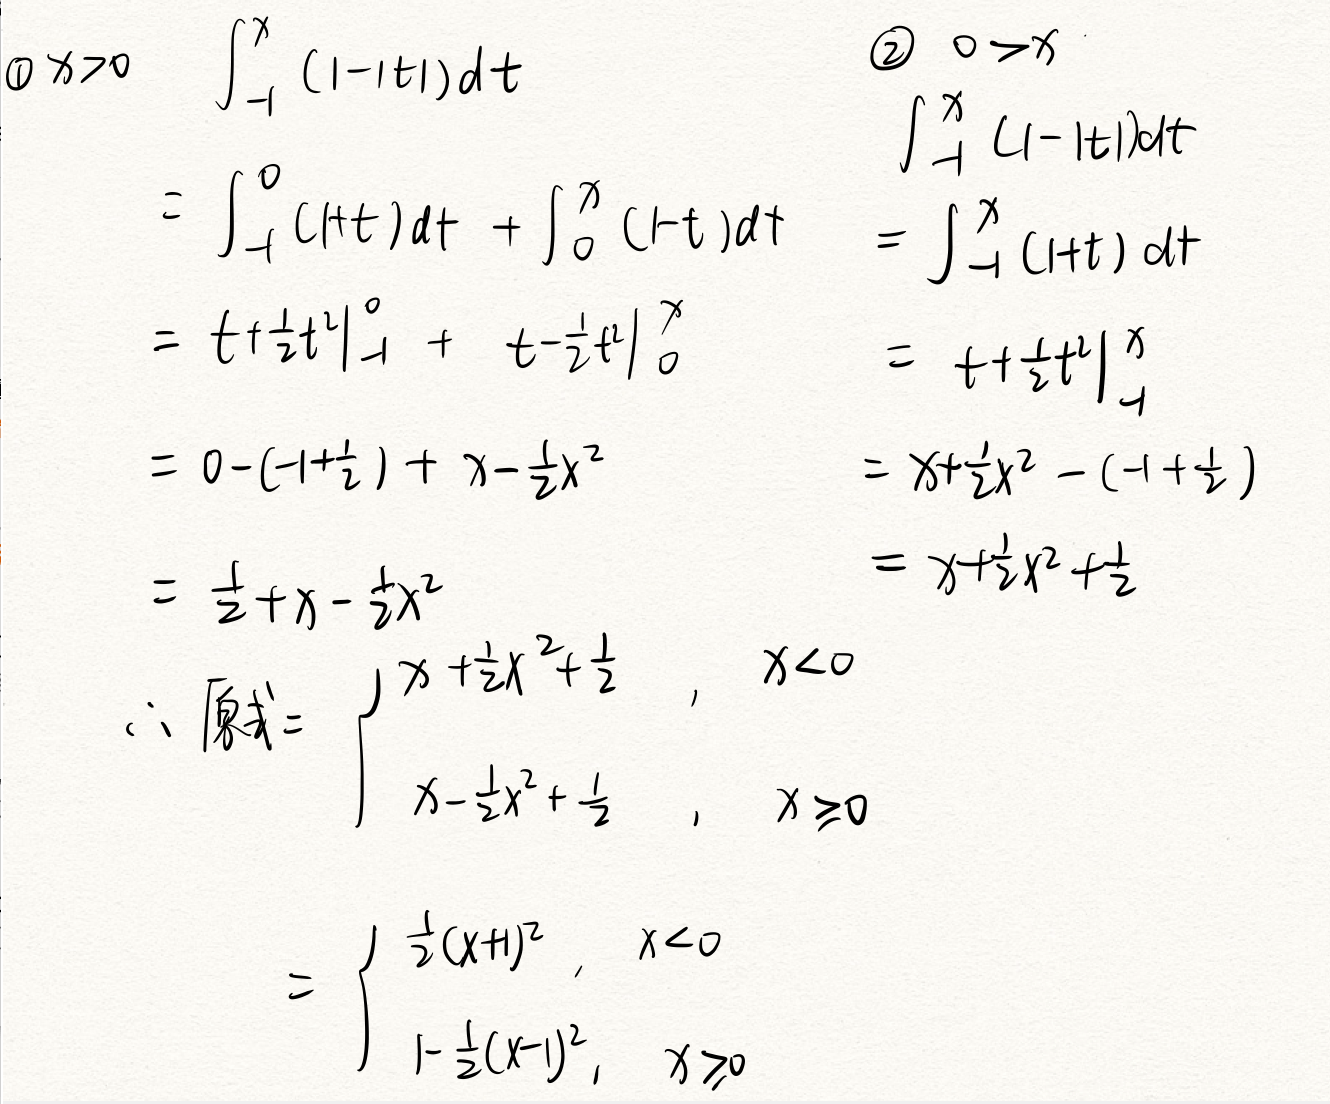 ① x>0 ∫_{-1}^{x} (1-|t|)dt
= ∫_{-1}^{0} (1+t)dt + ∫_{0}^{x} (1-t)dt
= t+½t²|_{-1}^{0} + t-½t²|_{0}^{x}
= 0-(-1+½) + x-½x²
= ½+x-½x²
② 0>x
∫_{-1}^{x} (1-|t|)dt
= ∫_{-1}^{x} (1+t)dt
= t+½t²|_{-1}^{x}
= x+½x²-(-1+½)
= x+½x²+½
∴ 原式= { x+½x²+½ , x<0
x-½x²+½ , x≥0
= { ½(x+1)² , x<0
1-½(x-1)² , x≥0